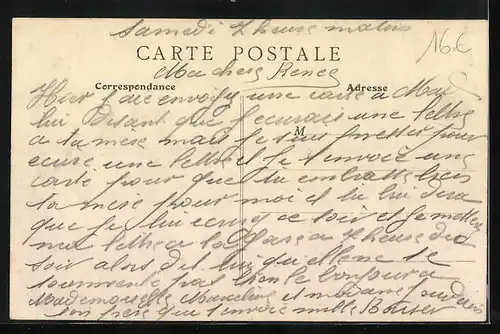 Samedi 7 heure matin
16€
CARTE POSTALE
Ma chere Renee
Correspondance
Adresse
M
Hier j'ai envoyé une carte a
lui disant que j'ecrirais une lettre
a ta mere mais je suis presser pour
ecrire une lettre et je t'envoie une
carte pour que tu embrasse bien
ta mere pour moi et tu lui dira
que je lui ecris ce soir et je mettrai
ma lettre a la gare a 7 heure du
soir alors dit lui qu'elle ne se
tourmente pas bien le bonjour a
Mademoiselle et madame
ton pere qui t'envoie mille Baiser